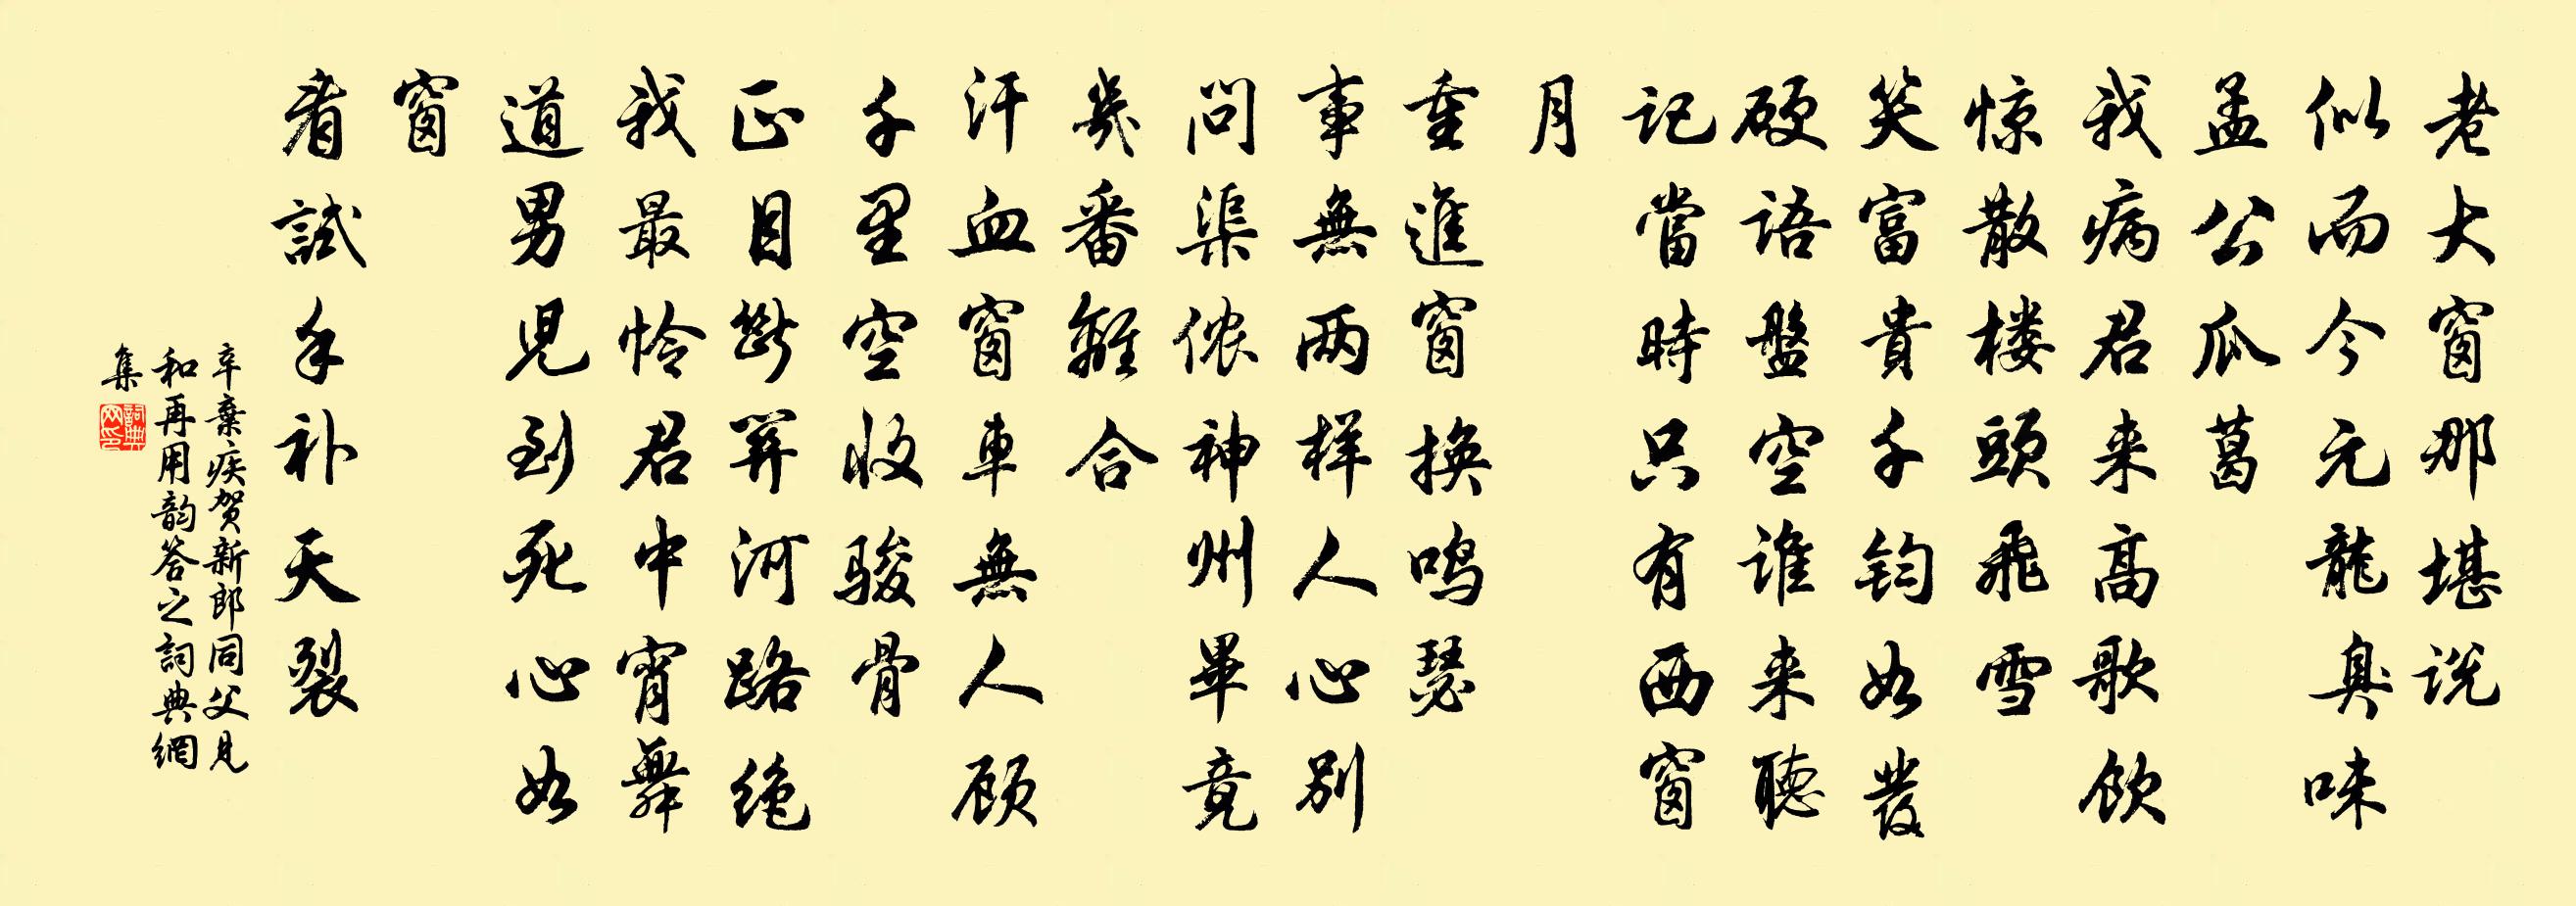 老大窗那堪说
似而今元龍臭味
孟公瓜葛
我病君来高歌飲
惊散楼頭飛雪
笑富貴千钧如發
硬語盤空谁来聽
记當時只有西窗
月
重進窗换鸣瑟
事無两样人心别
问渠侬神州畢竟
幾番離合
汗血窗車無人顾
千里空收骏骨
正目斷関河路绝
我最怜君中宵舞
道男兒到死心如
窗
看試手补天裂
辛棄疾贺新郎同父見
和再用韵答之詞典網
集
詞典
网印